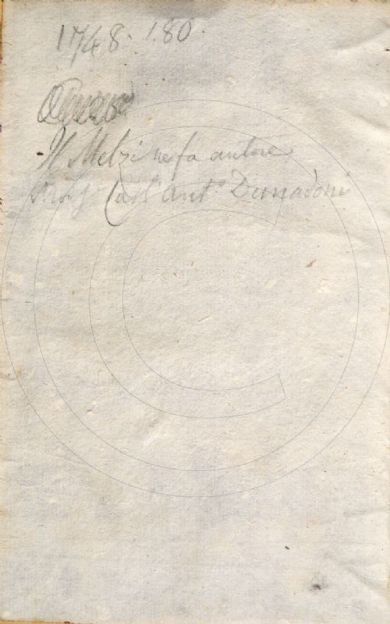 1748. 180.
Il Melzi ne fa autore
Carl'Ant.º Donadoni